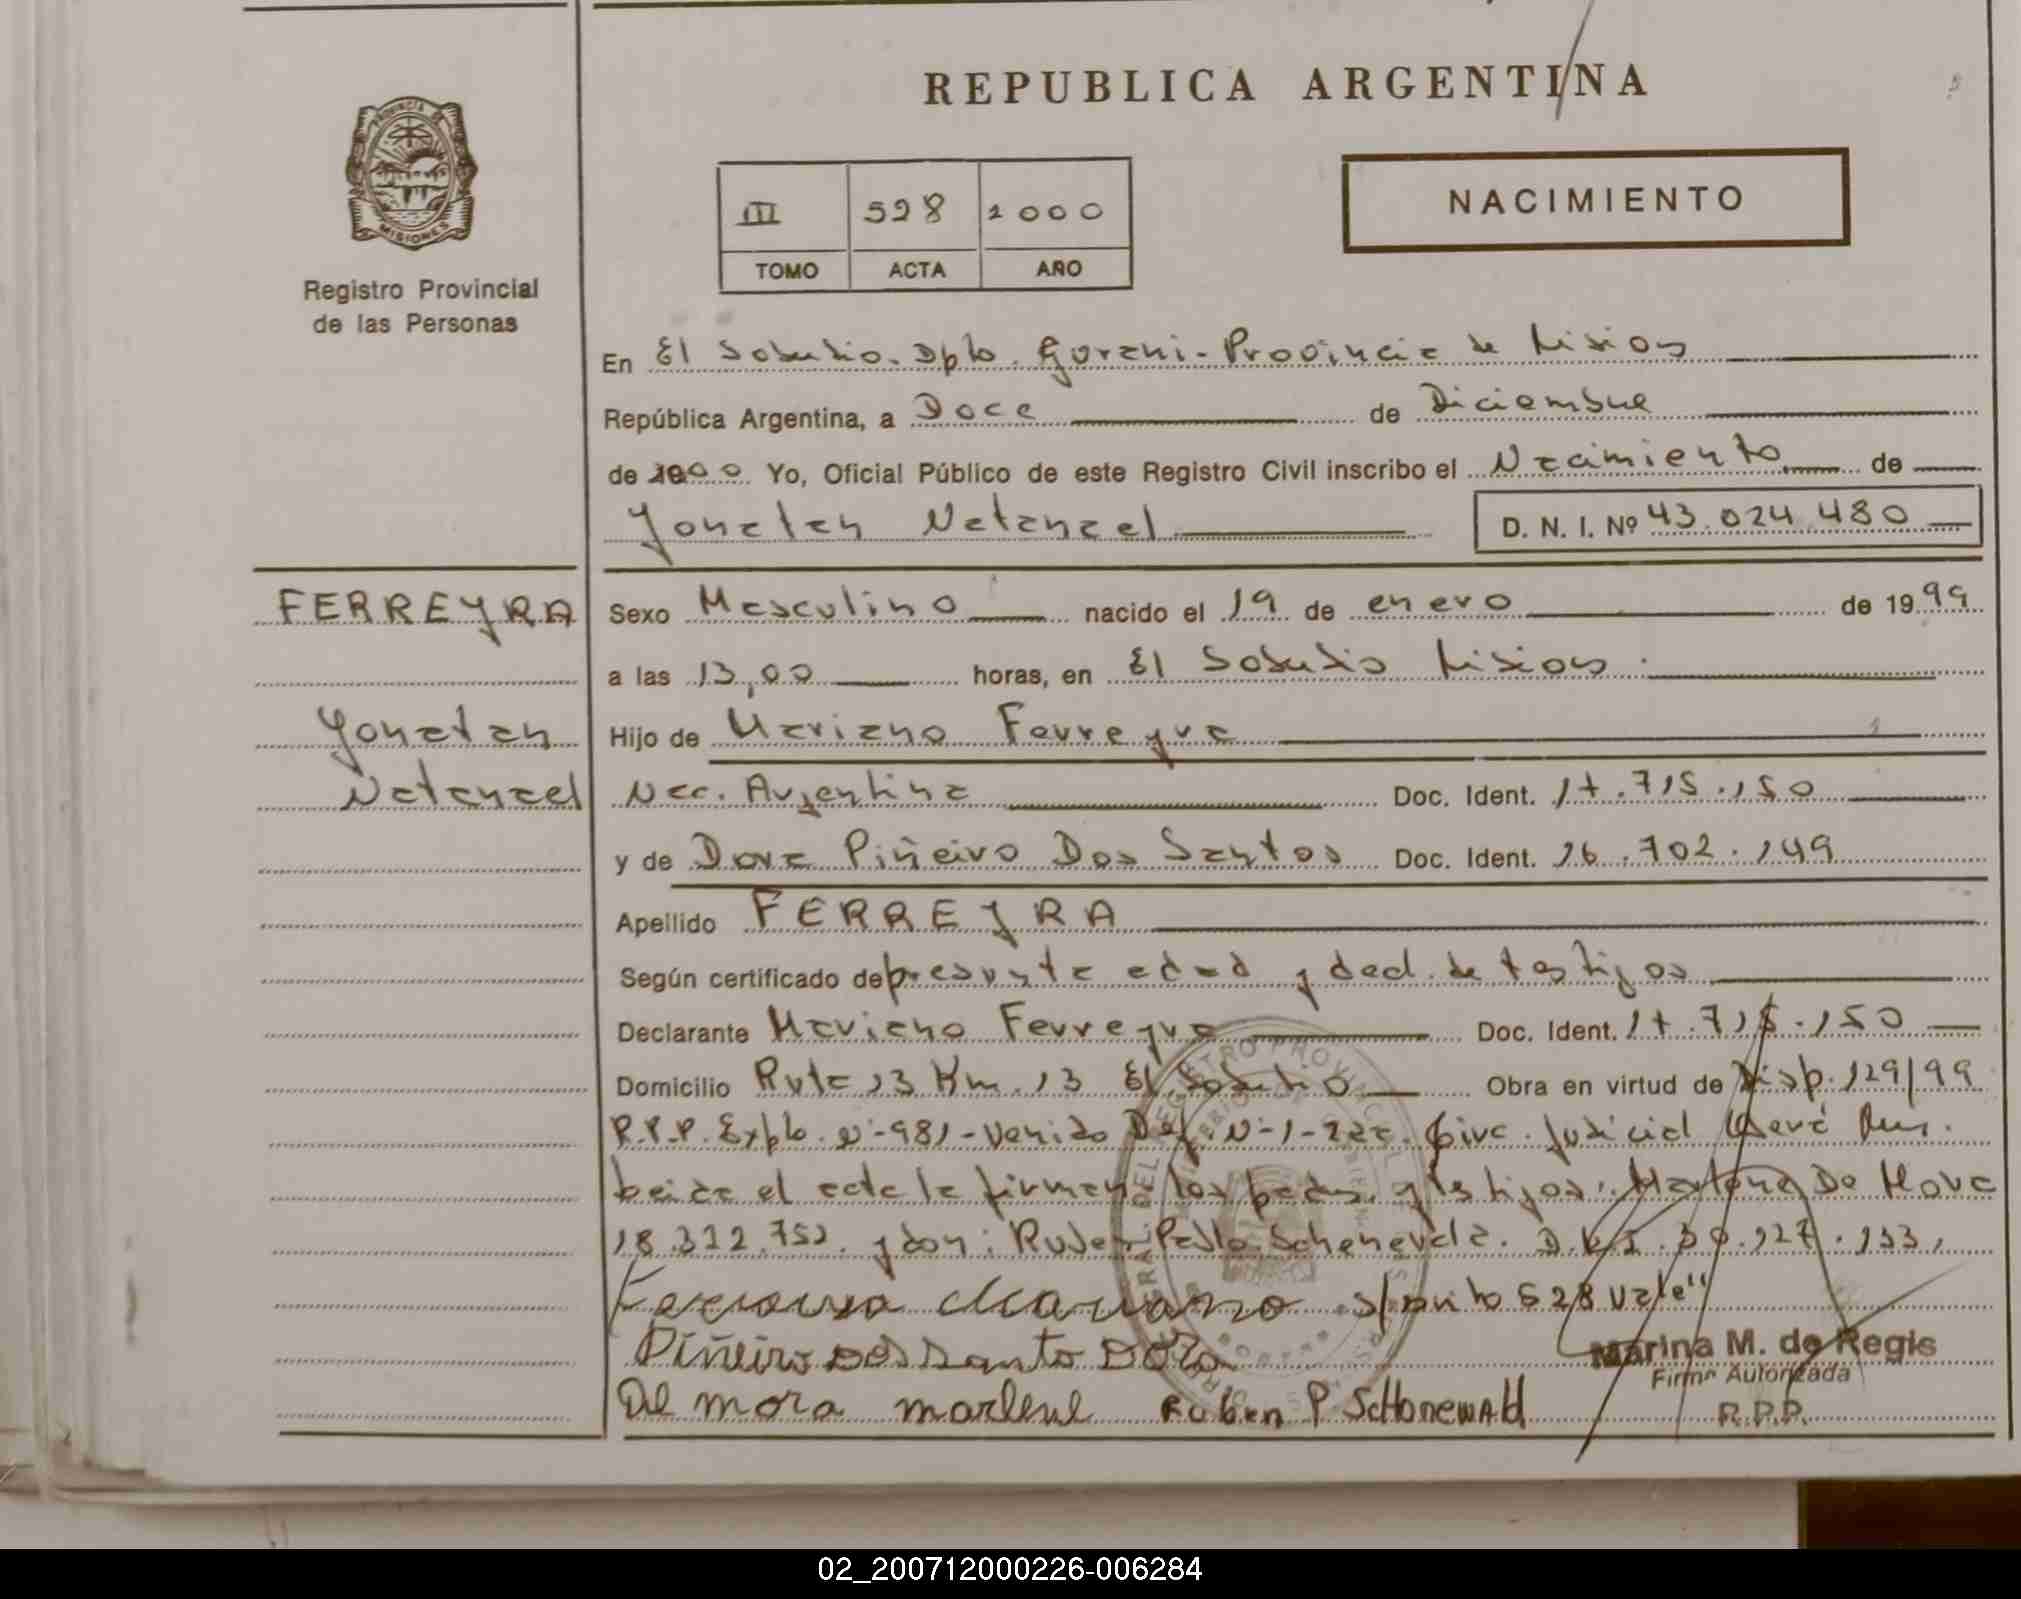 REPUBLICA ARGENTINA
PROVINCIA DE
MISIONES
Registro Provincial
de las Personas
III 528 2000
TOMO ACTA AÑO
NACIMIENTO
En El Soberbio. Dpto. Gurani - Provincia de Misiones
República Argentina, a Doce de Diciembre
de 2000 Yo, Oficial Público de este Registro Civil inscribo el Nacimiento de
Yonatan Natanael D. N. I. Nº 43.024.480
FERREYRA
Yonatan
Natanael
Sexo Masculino nacido el 19 de enero de 1999
a las 13,00 horas, en El Soberbio Misiones
Hijo de Mariano Ferreyra
Nac. Argentina Doc. Ident. 17.715.150
y de Dora Piñeiro Dos Santos Doc. Ident. 16.702.149
Apellido FERREYRA
Según certificado de presunta edad y decl. de testigos
Declarante Mariano Ferreyra Doc. Ident. 17.715.150
Domicilio Ruta 13 Km. 13 El Soberbio Obra en virtud de Disp. 129/99
R.P.P. Expte. Nº-981- Def. N-1- Judicial
el acta la firman los padres y testigos: De Mora
18.312.752 y don: Ruben Pedro D.N.I. 30.127.133,
Ferreyra Mariano 528 vale"
Piñeiro Dos Santo Dora
Marina M. de Regis
Firma Autorizada
De mora marlene Ruben P SCHonewald
R.P.P.
02_200712000226-006284